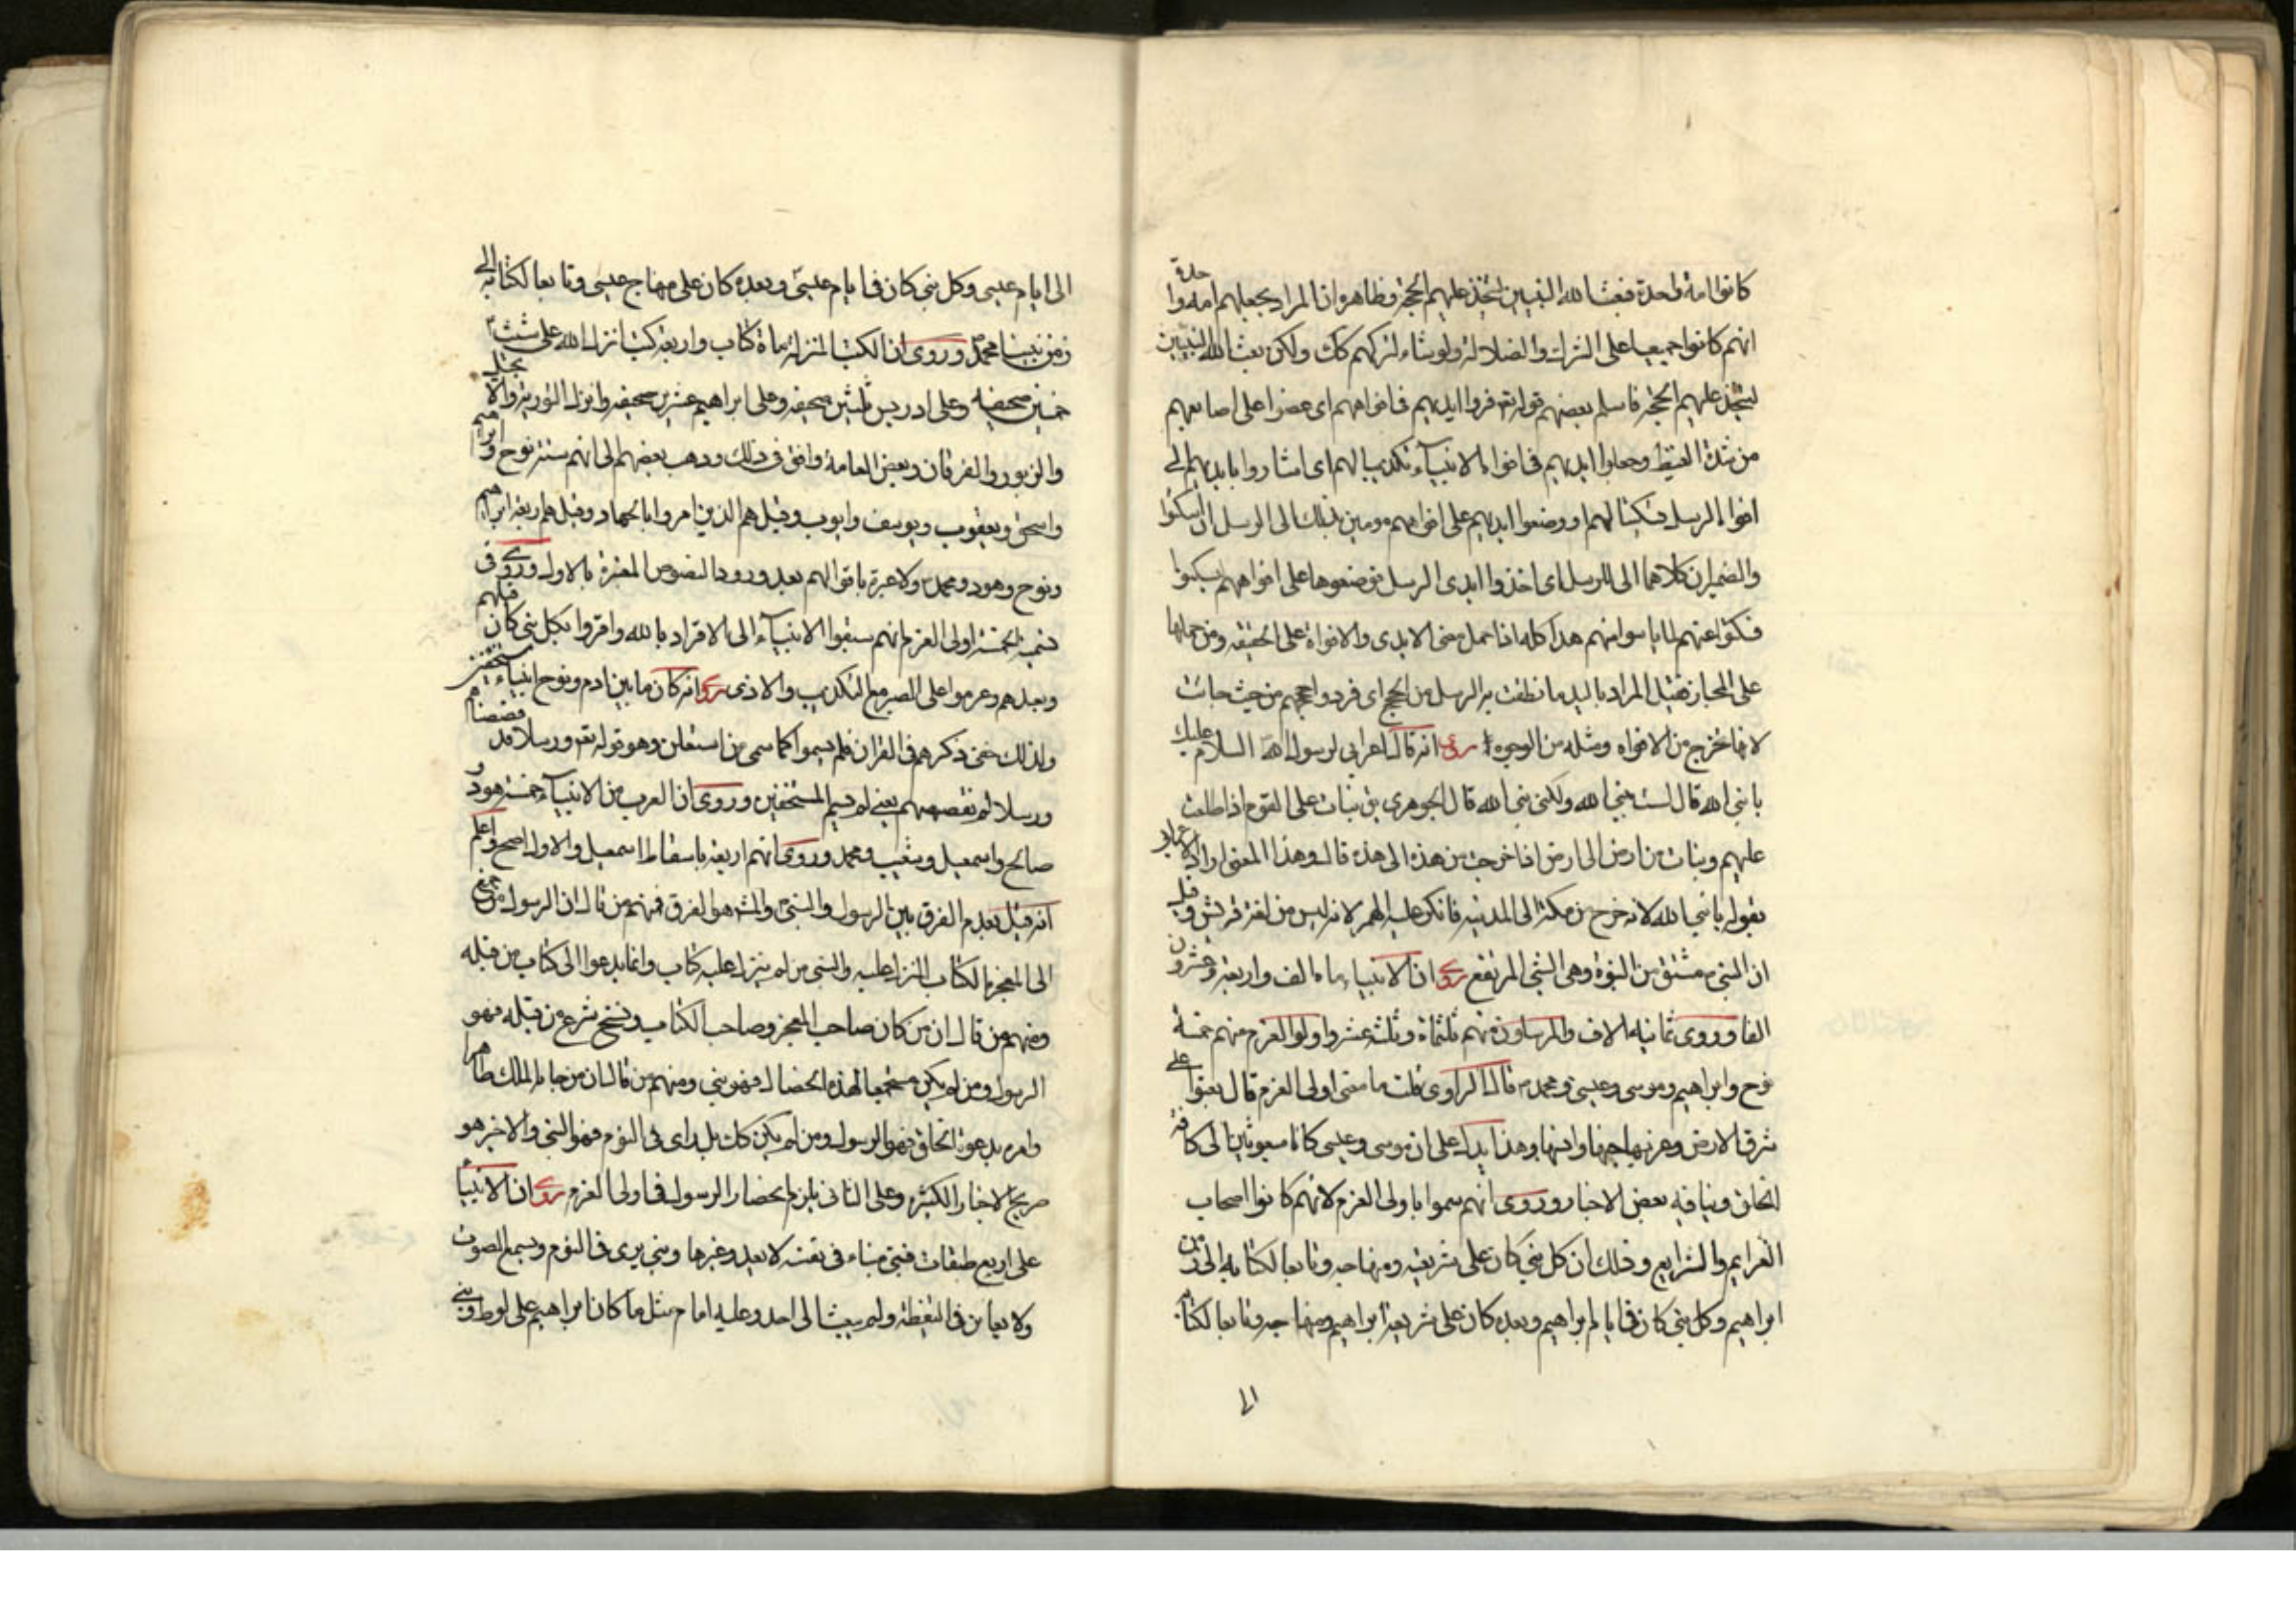 كانوا امة واحدة فبعث الله النبيين ليتخذ عليهم الحجة وظاهره ان المراد بجعلهم امة واحدة
انهم كانوا جميعا على الشرك والضلالة ولو شاء لتركهم كك ولكن بعث الله النبيين
ليتخذ عليهم الحجة فاسلم بعضهم قوله تع فردوا ايديهم في افواههم اى عضوا على اصابعهم
من شدة الغيظ وجعلوا ايديهم في افواه الانبياء تكذيبا لهم اى اشاروا بايديهم الى
افواه الرسل تسكيتا لهم او وضعوا ايديهم على افواههم مومين بذلك الى الرسل ان اسكتوا
والضميران كلاهما الى الرسل اى اخذوا ايدى الرسل فوضعوها على افواههم ليسكتوا
فسكتوا عنهم لما يأسوا منهم هذا كله اذا حمل معنى الايدى والافواه على الحقيقة ومن حملها
على المجاز فقيل المراد باليد ما نطقت به الرسل من الحجج اى فردوا حججهم من حيث جاءت
لانها تخرج من الافواه ومثله من الوجوه روى انه قال اعرابى لرسول الله السلام عليك
يا نبئ الله قال لست بنبئ الله ولكنى نبى الله قال الجوهرى يق نبأت على القوم اذا طلعت
عليهم ونبأت من ارض الى ارض اذا خرجت من هذه الى هذه قال وهذا المعنى اراد الاعرابى
بقوله يا نبئ الله لانه خرج من مكة الى المدينة فانكر عليه الهمز لانه ليس من لغة قريش وقيل
ان النبى مشتق من النبوة وهى الشئ المرتفع روى ان الانبياء مائة الف واربعة وعشرون
الفا وروى ثمانية الاف والمرسلون منهم ثلثمائة وثلثة عشر واولوا العزم منهم خمسة
نوح وابراهيم وموسى وعيسى ومحمد ص قال الراوى قلت ما معنى اولى العزم قال بعثوا على
شرق الارض وغربها جنها وانسها وهذا يدل على ان موسى وعيسى كانا مبعوثين الى كافة
الخلق وينافيه بعض الاخبار وروى انهم سموا باولى العزم لانهم كانوا اصحاب
العزايم والشرايع وذلك ان كل نبى كان على شريعته ومنهاجه وتابعا لكتابه الى زمن
ابراهيم وكل نبى كان فى ايام ابراهيم وبعده كان على شريعة ابراهيم ومنهاجه وتابعا لكتابه
الى
الى ايام عيسى وكل نبى كان فى ايام عيسى وبعده كان على منهاج عيسى وتابعا لكتابه الى
زمن نبينا محمد ص وروى ان الكتب المنزلة مائة كتاب واربعة كتب انزل الله على شيث
خمسين صحيفة وعلى ادريس ثلثين صحيفة وعلى ابراهيم عشرين صحيفة وانزل التورية والانجيل
والزبور والفرقان وبعض العامة وافق فى ذلك وذهب بعضهم الى انهم ستة نوح وابراهيم
واسحق ويعقوب ويوسف وايوب وقيل هم الذين امروا بالجهاد وقيل هم اربعة ابراهيم
ونوح وهود ومحمد ص ولا عبرة باقوالهم بعد ورود النصوص المعتبرة بالاول وروى فى
تسمية الخمسة اولى العزم انهم سبقوا الانبياء الى الاقرار بالله واقروا بكل نبى كان قبلهم
وبعدهم وعزموا على الصبر مع التكذيب والاذى روى انه كان ما بين ادم ونوح انبياء مستخفين
ولذلك خفى ذكرهم فى القران فلم يسموا كما سمى من استعلن وهو قوله تع ورسلا قد قصصناهم
ورسلا لم نقصصهم يعنى لم يسم المستخفين وروى ان العرب من الانبياء خمسة هود و
صالح واسمعيل وشعيب ومحمد وروى انهم اربعة باسقاط اسمعيل والاول اصح واعلم
انه قيل بعدم الفرق بين الرسول والنبى والمشهور الفرق فمنهم من قال ان الرسول من جمع
الى المعجزة الكتاب المنزل عليه والنبى من لم ينزل عليه كتاب وانما يدعوا الى كتاب من قبله
ومنهم من قال ان من كان صاحب المعجز وصاحب الكتاب ونسخ شرع من قبله فهو
الرسول ومن لم يكن مستجمعا لهذه الخصال فهو نبى ومنهم من قال ان من جاءه الملك ظاهرا
وامره بدعوة الخلق فهو الرسول ومن لم يكن كك بل راى فى النوم فهو النبى والاخير هو
صريح الاخبار الكثيرة وعلى الثانى يلزم انحصار الرسول فى اولى العزم روى ان الانبياء
على اربع طبقات فنبى منباء فى نفسه لا يعدو غيرها ونبى يرى فى النوم ويسمع الصوت
ولا يعاين فى اليقظة ولم يبعث الى احد وعليه امام مثل ما كان ابراهيم على لوط ونبى